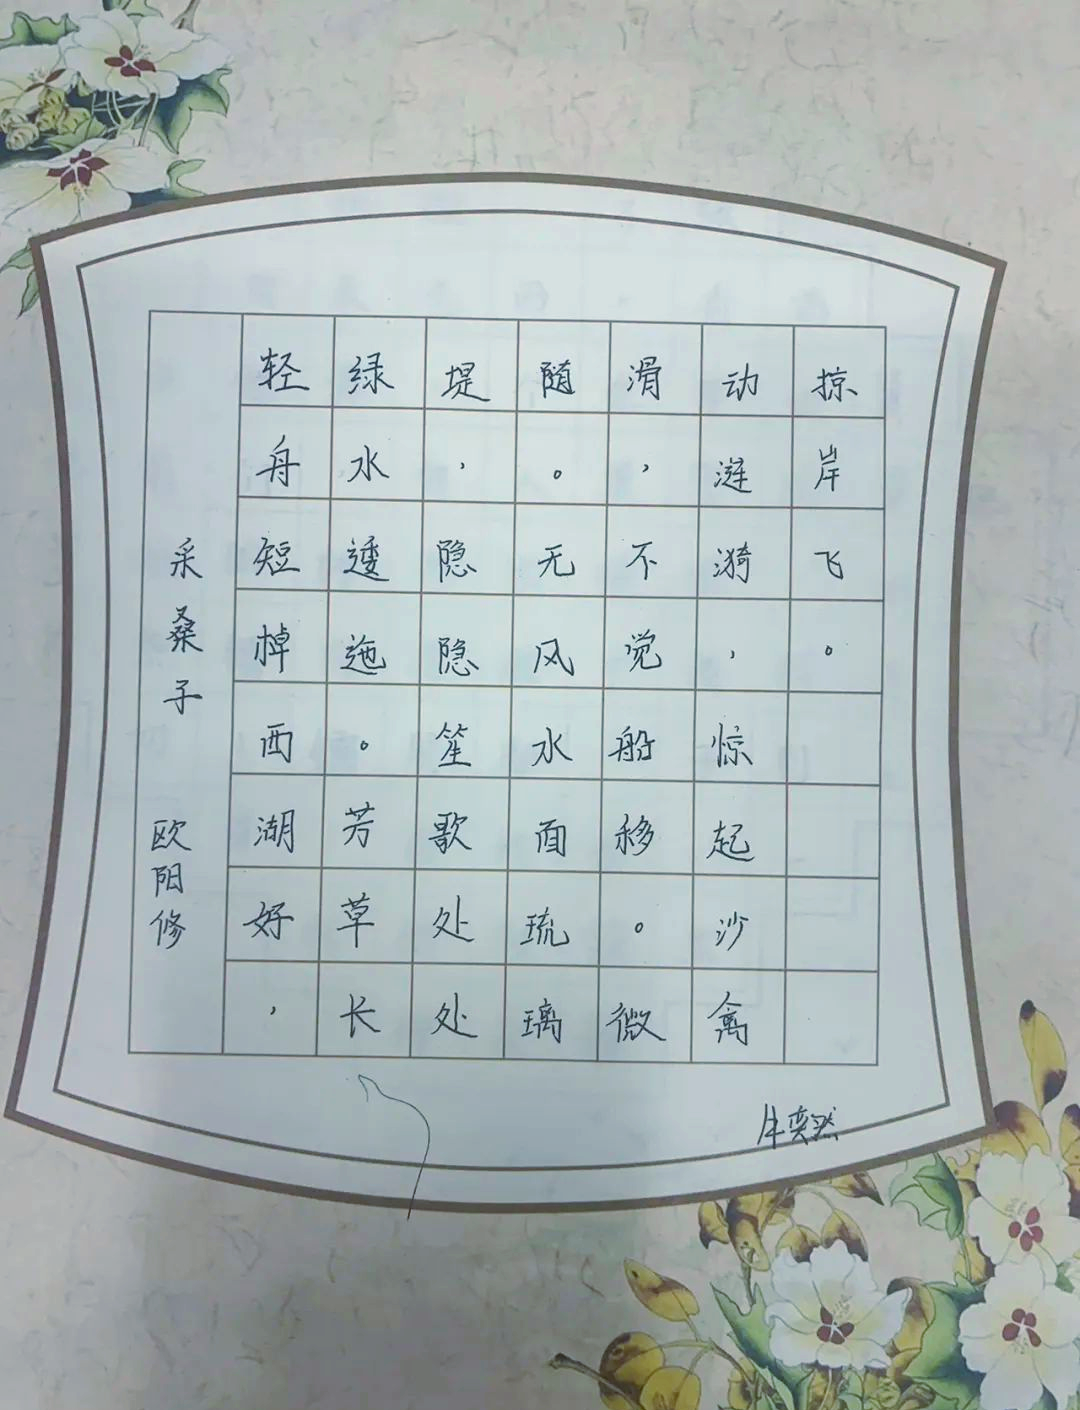 采桑子 欧阳修
轻舟短棹西湖好，
绿水逶迤。芳草长
堤，隐隐笙歌处处
随。无风水面琉璃
滑，不觉船移。微
动涟漪，惊起沙禽
掠岸飞。
牛奕然